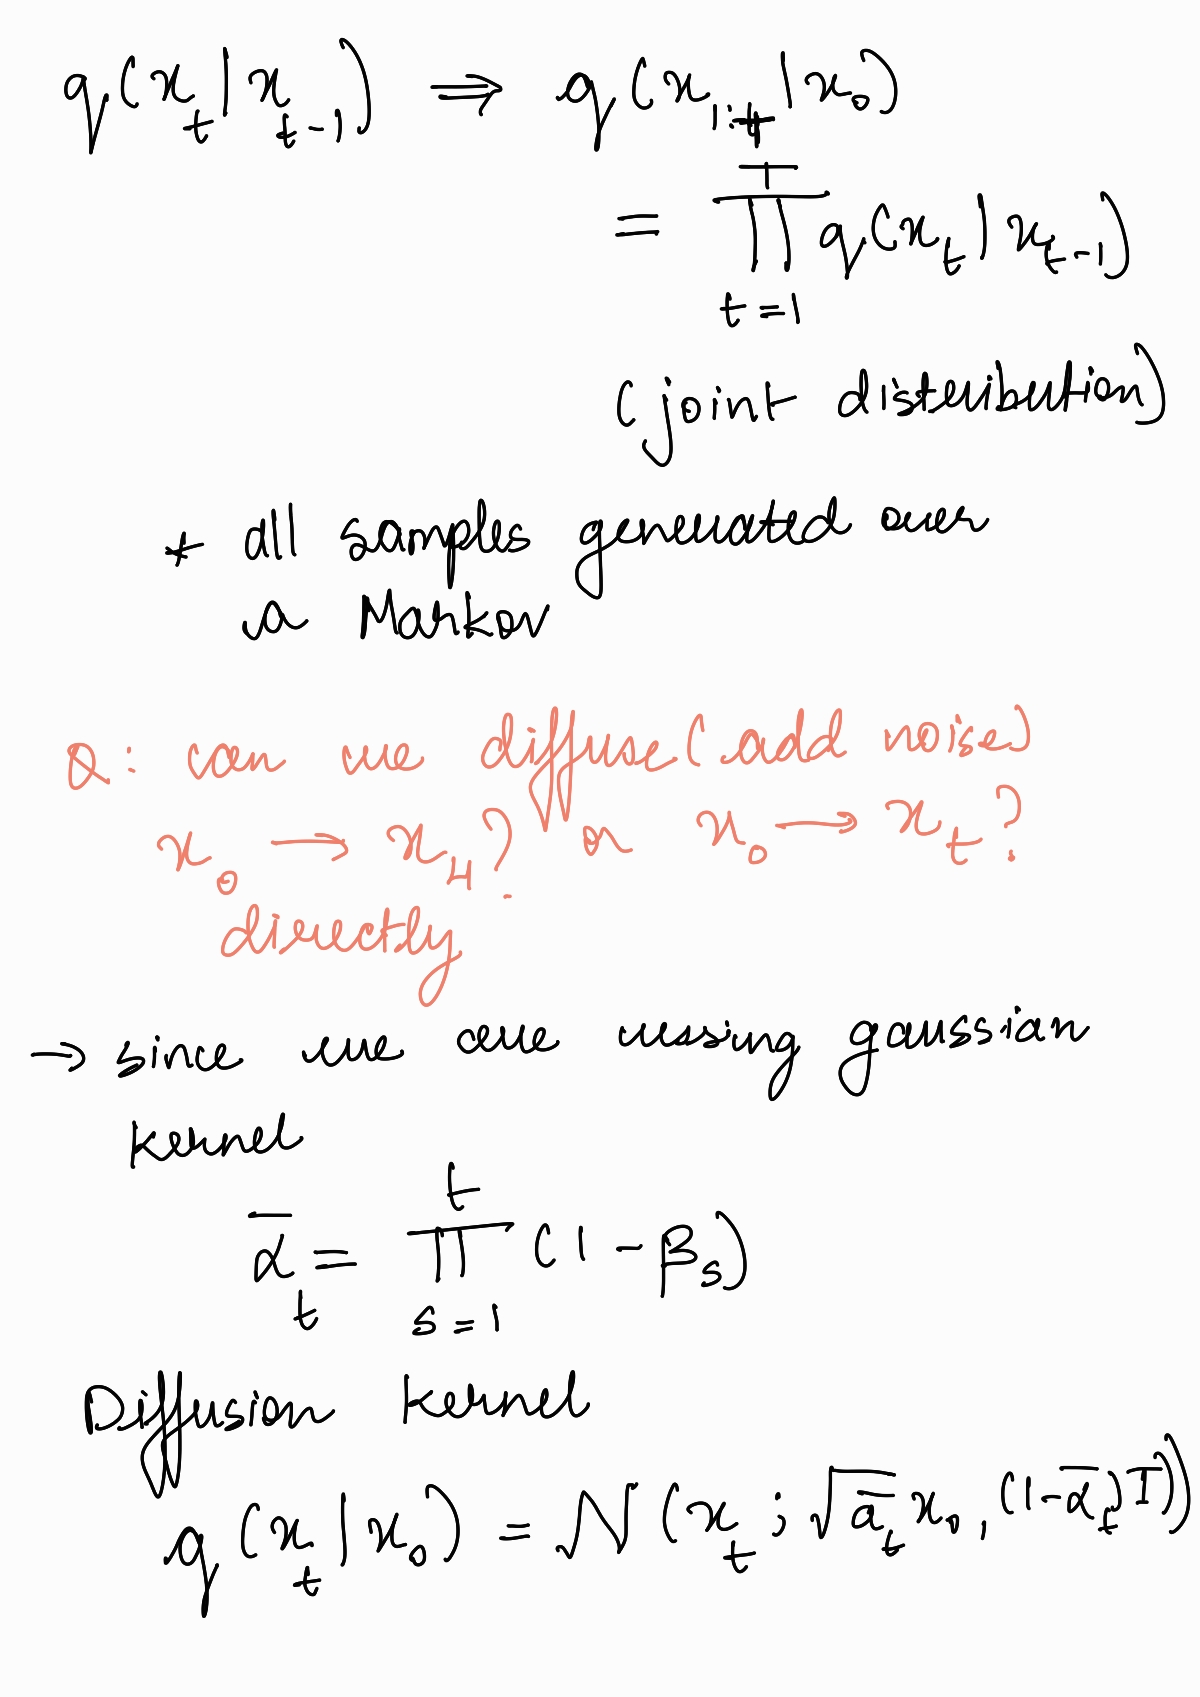 q(x_t | x_{t-1}) ⇒ q(x_{1:T} | x_0)
= ∏_{t=1}^{T} q(x_t | x_{t-1})
(joint distribution)
* all samples generated over
a Markov
Q: can we diffuse (add noise)
x_0 → x_4? or x_0 → x_t?
directly
→ since we are using gaussian
kernel
ᾱ_t = ∏_{s=1}^{t} (1 - β_s)
Diffusion kernel
q(x_t | x_0) = N(x_t ; √ā_t x_0, (1-ᾱ_t)I))